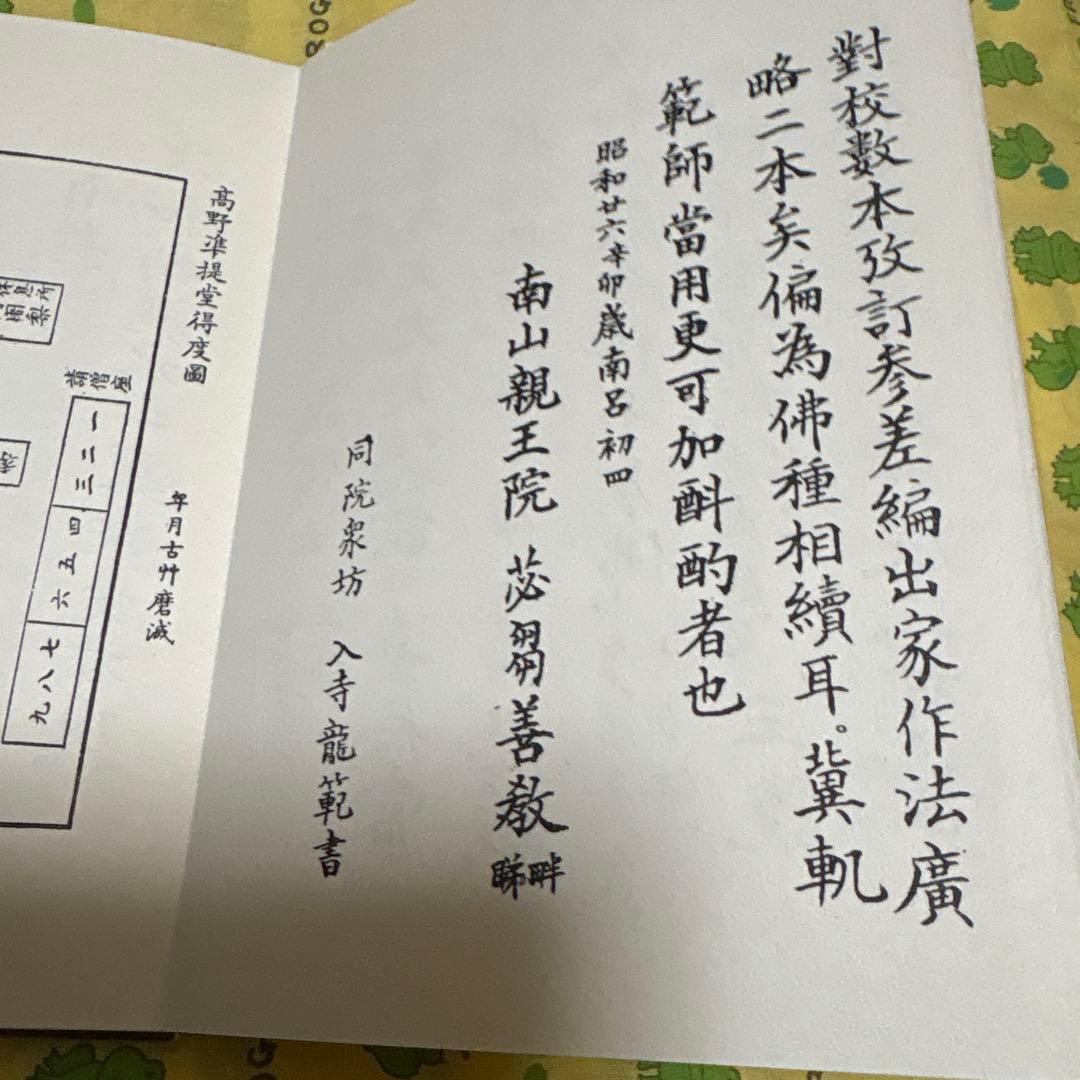 對校数本攷訂参差編出家作法廣
略二本矣偏為佛種相續耳。冀軌
範師當用更可加斟酌者也
昭和廿六辛卯歳南呂初四
南山親王院 苾蒭善教
同院衆坊 入寺龍範書
高野準提堂得度圖
年月古艸磨滅
請僧座
一二三
四五六
七八九